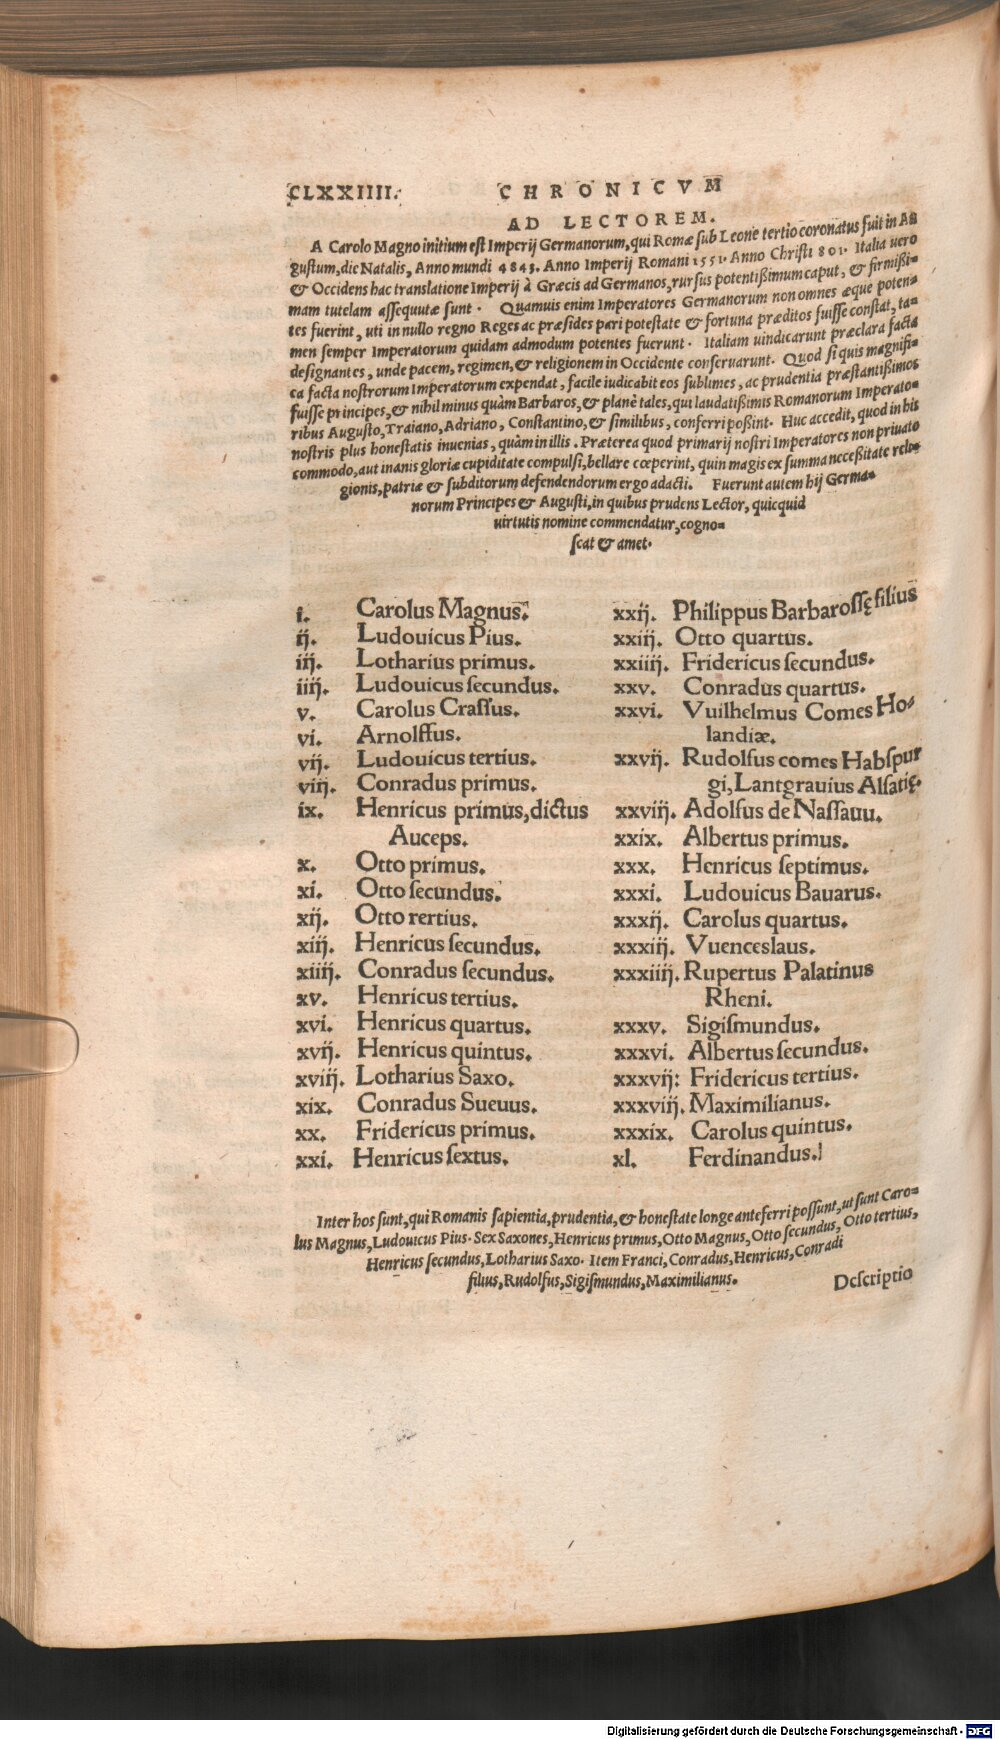 CLXXIIII. CHRONICVM
AD LECTOREM.
A Carolo Magno initium est Imperij Germanorum, qui Romæ sub Leone tertio coronatus fuit in Au
gustum, die Natalis, Anno mundi 4843. Anno Imperij Romani 1551. Anno Christi 801. Italia uero
& Occidens hac translatione Imperij à Græcis ad Germanos, rursus potentißimum caput, & firmißi=
mam tutelam assequutæ sunt. Quamuis enim Imperatores Germanorum non omnes æque poten=
tes fuerint, uti in nullo regno Reges ac præsides pari potestate & fortuna præditos fuisse constat, ta=
men semper Imperatorum quidam admodum potentes fuerunt. Italiam uindicarunt præclara facta
designantes, unde pacem, regimen, & religionem in Occidente conseruarunt. Quod si quis magnifi=
ca facta nostrorum Imperatorum expendat, facile iudicabit eos sublimes, ac prudentia præstantißimos
fuisse principes, & nihil minus quàm Barbaros, & planè tales, qui laudatißimis Romanorum Imperato=
ribus Augusto, Traiano, Adriano, Constantino, & similibus, conferri poßint. Huc accedit, quod in his
nostris plus honestatis inuenias, quàm in illis. Præterea quod primarij nostri Imperatores non priuato
commodo, aut inanis gloriæ cupiditate compulsi, bellare cœperint, quin magis ex summa neceßitate reli=
gionis, patriæ & subditorum defendendorum ergo adacti. Fuerunt autem hij Germa=
norum Principes & Augusti, in quibus prudens Lector, quicquid
uirtutis nomine commendatur, cogno=
scat & amet.
i. Carolus Magnus.
ij. Ludouicus Pius.
iij. Lotharius primus.
iiij. Ludouicus secundus.
v. Carolus Crassus.
vi. Arnolffus.
vij. Ludouicus tertius.
viij. Conradus primus.
ix. Henricus primus, dictus
Auceps.
x. Otto primus.
xi. Otto secundus.
xij. Otto rertius.
xiij. Henricus secundus.
xiiij. Conradus secundus.
xv. Henricus tertius.
xvi. Henricus quartus.
xvij. Henricus quintus.
xviij. Lotharius Saxo.
xix. Conradus Sueuus.
xx. Fridericus primus.
xxi. Henricus sextus.
xxij. Philippus Barbarossę filius
xxiij. Otto quartus.
xxiiij. Fridericus secundus.
xxv. Conradus quartus.
xxvi. Vuilhelmus Comes Ho=
landiæ.
xxvij. Rudolfus comes Habspur
gi, Lantgrauius Alsatię.
xxviij. Adolfus de Nassauu.
xxix. Albertus primus.
xxx. Henricus septimus.
xxxi. Ludouicus Bauarus.
xxxij. Carolus quartus.
xxxiij. Vuenceslaus.
xxxiiij. Rupertus Palatinus
Rheni.
xxxv. Sigismundus.
xxxvi. Albertus secundus.
xxxvij: Fridericus tertius.
xxxviij. Maximilianus.
xxxix. Carolus quintus.
xl. Ferdinandus.
Inter hos sunt, qui Romanis sapientia, prudentia, & honestate longe anteferri possunt, ut sunt Caro=
lus Magnus, Ludouicus Pius. Sex Saxones, Henricus primus, Otto Magnus, Otto secundus, Otto tertius,
Henricus secundus, Lotharius Saxo. Item Franci, Conradus, Henricus, Conradi
filius, Rudolfus, Sigismundus, Maximilianus.
Descriptio
Digitalisierung gefördert durch die Deutsche Forschungsgemeinschaft - DFG